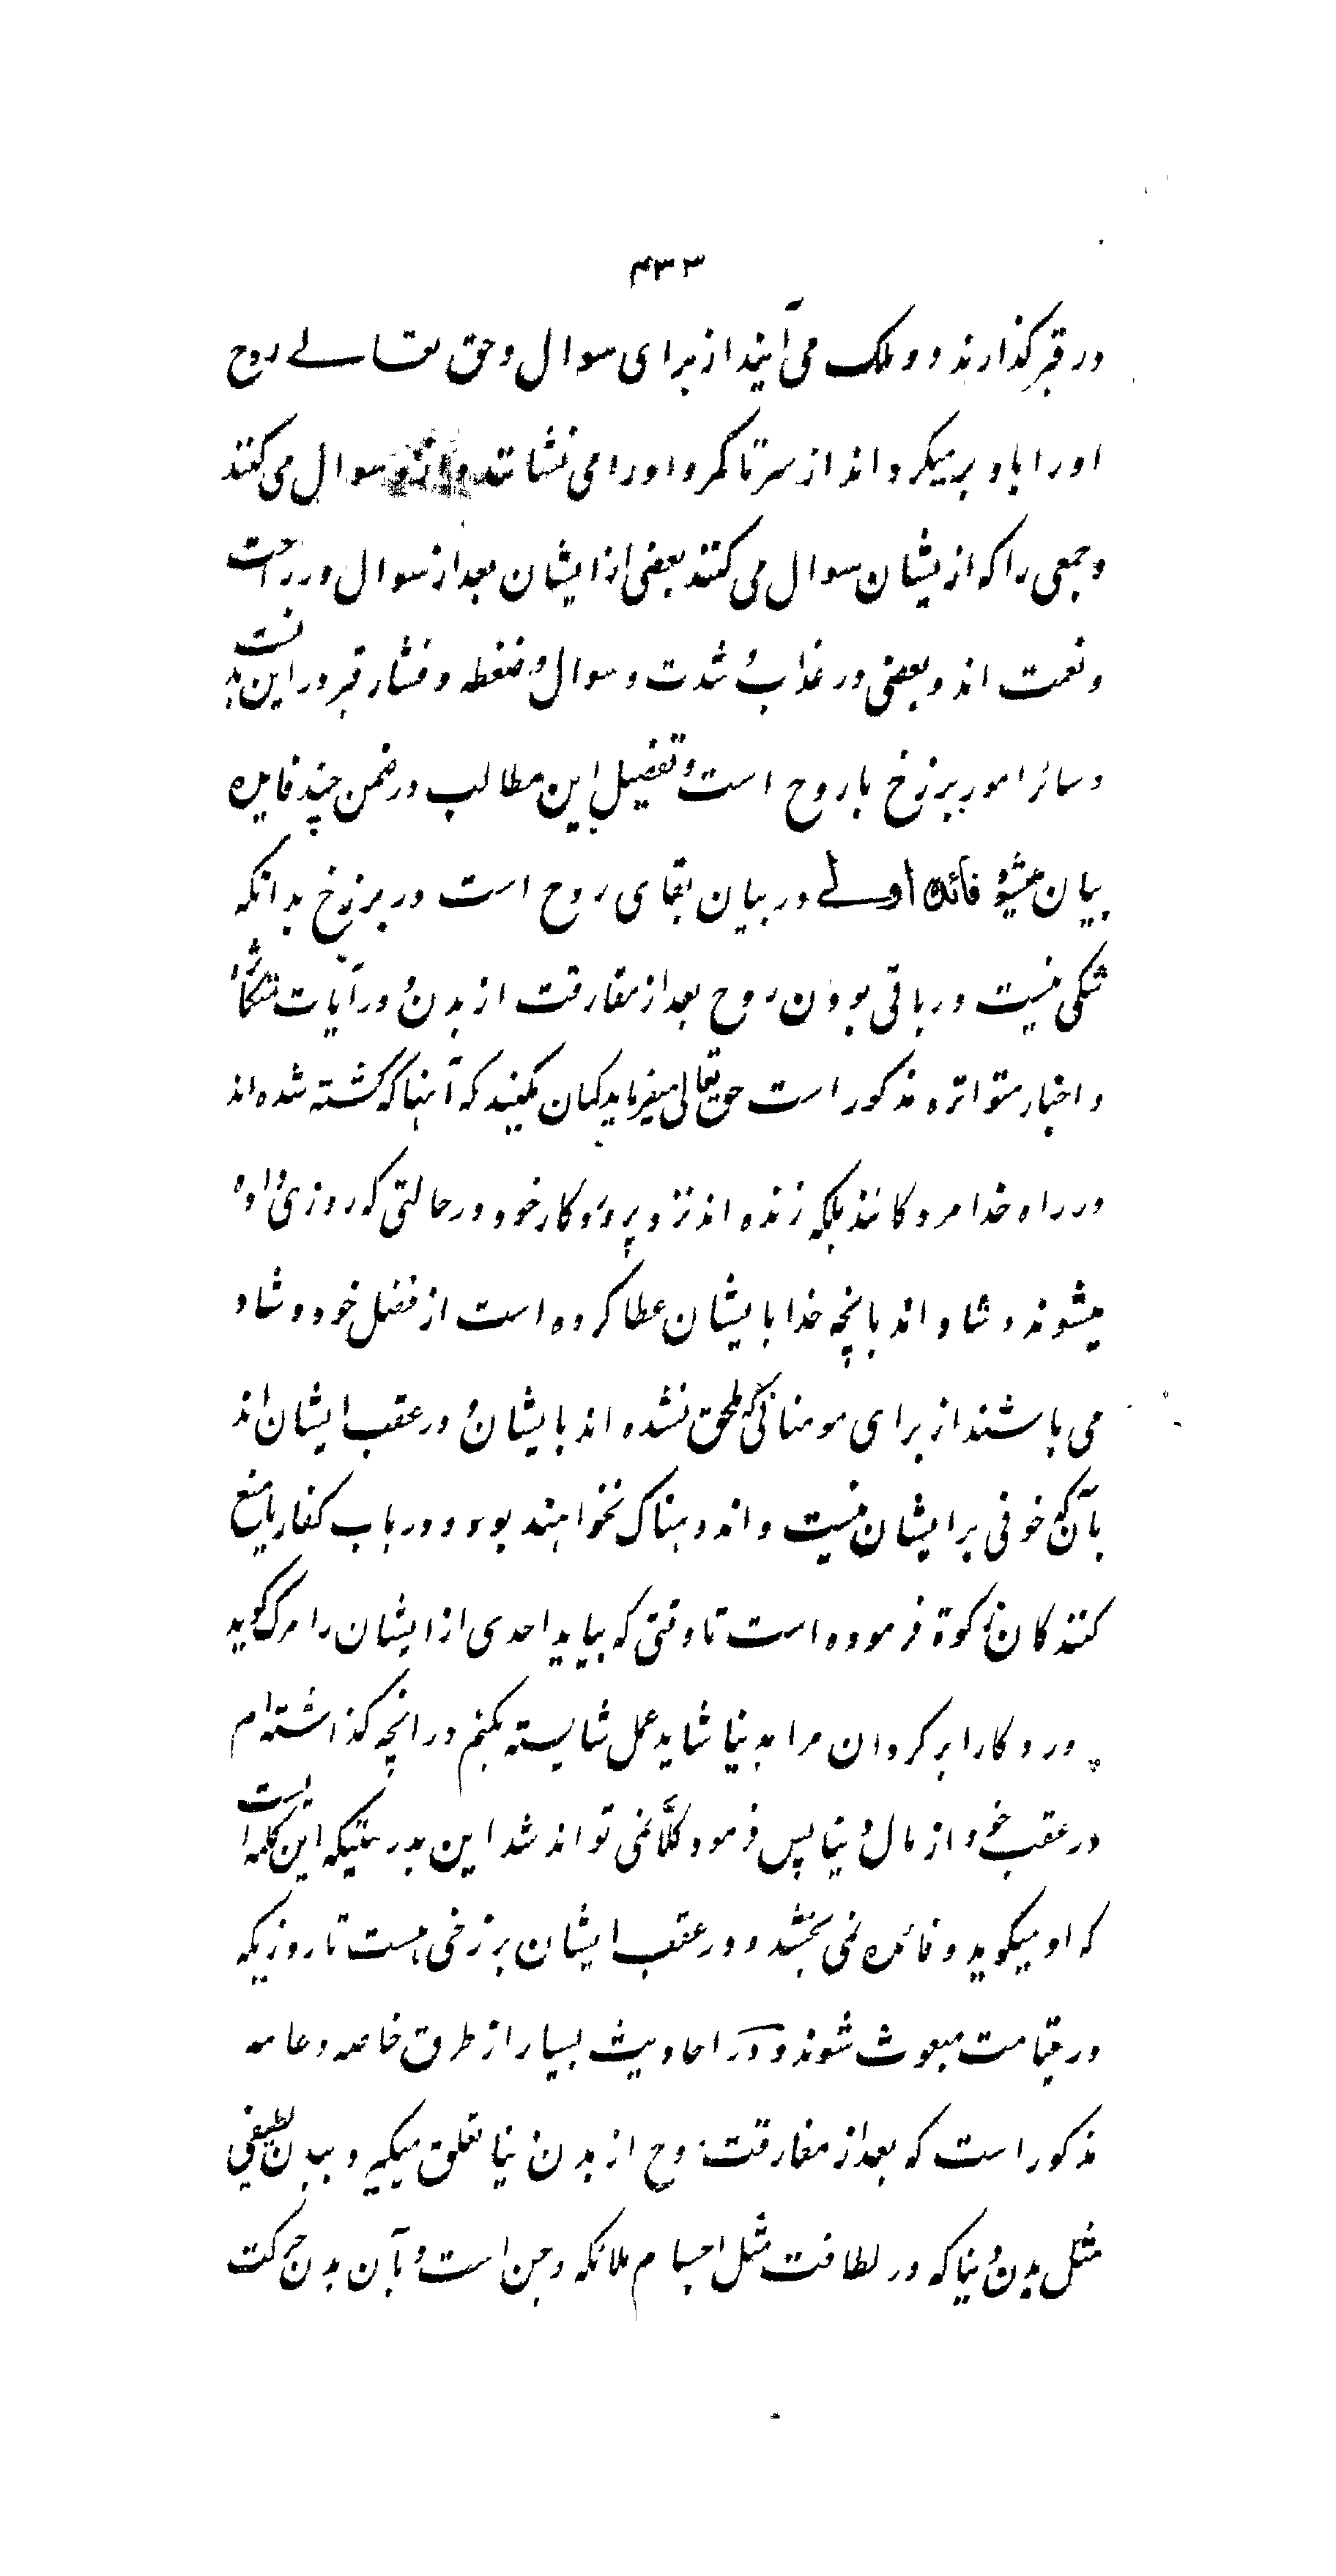 ۴۳۳
در قبر گذارند دو ملک می آیند از برای سوال و حق تعالے روح
اورا باو بر میگرداند از سر تا کمر و اورا می نشانند و ازو سوال می کنند
و جمعی را که از یشان سوال می کنند بعضی از ایشان بعد از سوال در راحت
و نعمت اند و بعضی در عذاب و شدت و سوال و ضغطه و فشار قبر در این بدنست
و سائر امور برزخ با روح است و تفصیل این مطالب در ضمن چند فایده
بیان میشود فائده اولے در بیان بقای روح است در برزخ بدانکه
شکی نیست در باقی بودن روح بعد از مفارقت از بدن و در آیات متکاثره
و اخبار متواتره مذکور است حق تعالی میفرماید گمان مکنید که آنها که کشته شده اند
در راه خدا مردگانند بلکه زنده اند نزد پروردگار خود در حالتی که روزی داده
میشوند و شاد اند بانچه خدا بایشان عطا کرده است از فضل خود و شاد
می باشند از برای مومنانی که ملحق نشده اند بایشان و در عقب ایشان اند
بآن که خوفی بر ایشان نیست و اندوهناک نخواهند بود و در باب کفار یا منع
کنندگان زکوة فرموده است تا وقتی که بیاید احدی از ایشان را مرگ گوید
پروردگارا برگردان مرا بدنیا شاید عمل شایسته بکنم در انچه گذاشته ام
در عقب خود از مال دنیا پس فرمود کلّا نمی تواند شد این بدرستیکه این کلمه است
که او میگوید و فائده نمی بخشد و در عقب ایشان برزخی هست تا روزیکه
در قیامت مبعوث شوند و در احادیث بسیار از طرق خاصه و عامه
مذکور است که بعد از مفارقت روح از بدن دنیا تعلق میگیرد ببدن لطیفی
مثل بدن دنیا که در لطافت مثل اجسام ملائکه و جن است و بآن بدن حرکت